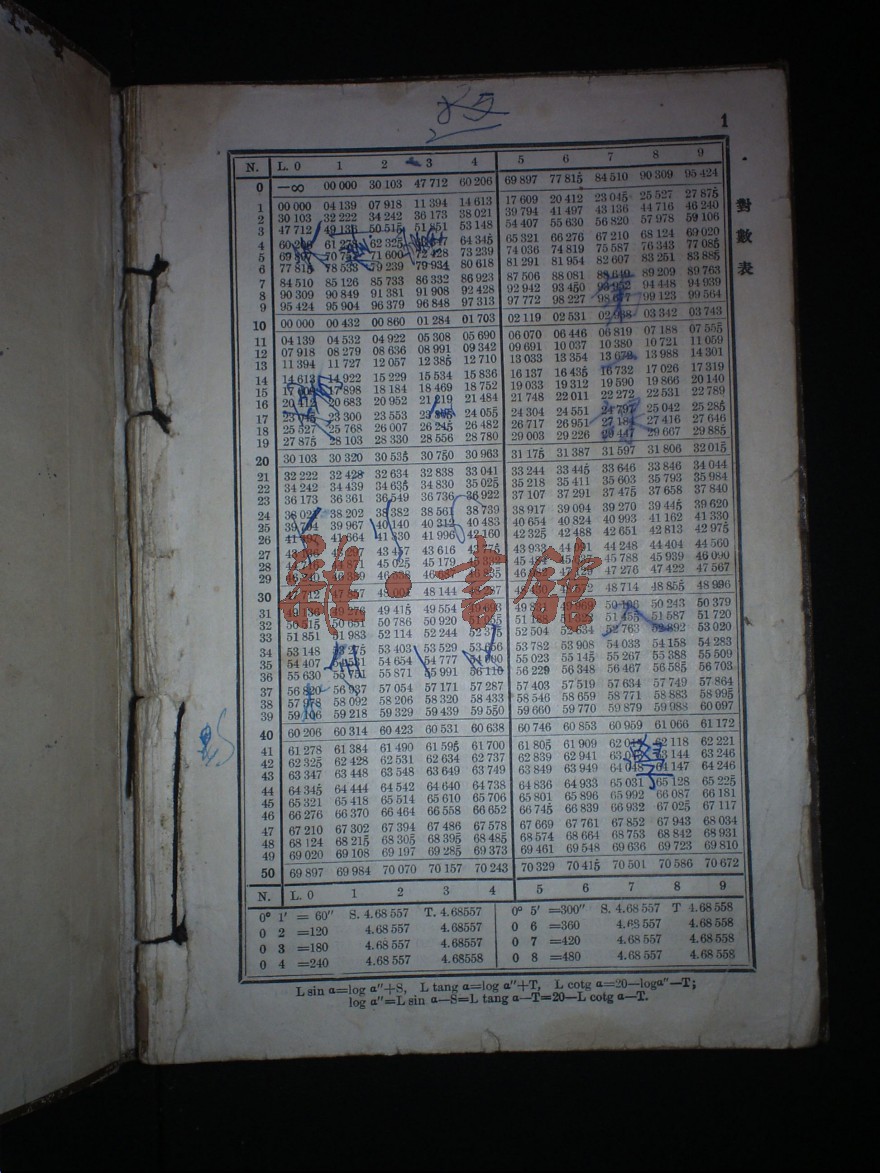 1
對數表
N. L. 0 1 2 3 4 5 6 7 8 9
0 —∞ 00 000 30 103 47 712 60 206 69 897 77 815 84 510 90 309 95 424
1 00 000 04 139 07 918 11 394 14 613 17 609 20 412 23 045 25 527 27 875
2 30 103 32 222 34 242 36 173 38 021 39 794 41 497 43 136 44 716 46 240
3 47 712 49 136 50 515 51 851 53 148 54 407 55 630 56 820 57 978 59 106
4 60 206 61 278 62 325 64 345 65 321 66 276 67 210 68 124 69 020
5 69 897 70 757 71 600 72 428 73 239 74 036 74 819 75 587 76 343 77 085
6 77 815 78 533 79 239 79 934 80 618 81 291 81 954 82 607 83 251 83 885
7 84 510 85 126 85 733 86 332 86 923 87 506 88 081 88 649 89 209 89 763
8 90 309 90 849 91 381 91 908 92 428 92 942 93 450 93 952 94 448 94 939
9 95 424 95 904 96 379 96 848 97 313 97 772 98 227 98 677 99 123 99 564
10 00 000 00 432 00 860 01 284 01 703 02 119 02 531 02 938 03 342 03 743
11 04 139 04 532 04 922 05 308 05 690 06 070 06 446 06 819 07 188 07 555
12 07 918 08 279 08 636 08 991 09 342 09 691 10 037 10 380 10 721 11 059
13 11 394 11 727 12 057 12 385 12 710 13 033 13 354 13 672 13 988 14 301
14 14 613 14 922 15 229 15 534 15 836 16 137 16 435 16 732 17 026 17 319
15 17 609 17 898 18 184 18 469 18 752 19 033 19 312 19 590 19 866 20 140
16 20 412 20 683 20 952 21 219 21 484 21 748 22 011 22 272 22 531 22 789
17 23 045 23 300 23 553 23 805 24 055 24 304 24 551 24 797 25 042 25 285
18 25 527 25 768 26 007 26 245 26 482 26 717 26 951 27 184 27 416 27 646
19 27 875 28 103 28 330 28 556 28 780 29 003 29 226 29 447 29 667 29 885
20 30 103 30 320 30 535 30 750 30 963 31 175 31 387 31 597 31 806 32 015
21 32 222 32 428 32 634 32 838 33 041 33 244 33 445 33 646 33 846 34 044
22 34 242 34 439 34 635 34 830 35 025 35 218 35 411 35 603 35 793 35 984
23 36 173 36 361 36 549 36 736 36 922 37 107 37 291 37 475 37 658 37 840
24 38 021 38 202 38 382 38 561 38 739 38 917 39 094 39 270 39 445 39 620
25 39 794 39 967 40 140 40 312 40 483 40 654 40 824 40 993 41 162 41 330
26 41 497 41 664 41 830 41 996 42 160 42 325 42 488 42 651 42 813 42 975
27 43 136 43 297 43 457 43 616 43 775 43 933 44 091 44 248 44 404 44 560
28 44 716 44 871 45 025 45 179 45 332 45 484 45 637 45 788 45 939 46 090
29 46 240 46 389 46 538 46 687 46 835 46 982 47 129 47 276 47 422 47 567
30 47 712 47 857 48 001 48 144 48 287 48 430 48 572 48 714 48 855 48 996
31 49 136 49 276 49 415 49 554 49 693 49 831 49 969 50 106 50 243 50 379
32 50 515 50 651 50 786 50 920 51 055 51 188 51 322 51 455 51 587 51 720
33 51 851 51 983 52 114 52 244 52 375 52 504 52 634 52 763 52 892 53 020
34 53 148 53 275 53 403 53 529 53 656 53 782 53 908 54 033 54 158 54 283
35 54 407 54 531 54 654 54 777 54 900 55 023 55 145 55 267 55 388 55 509
36 55 630 55 751 55 871 55 991 56 110 56 229 56 348 56 467 56 585 56 703
37 56 820 56 937 57 054 57 171 57 287 57 403 57 519 57 634 57 749 57 864
38 57 978 58 092 58 206 58 320 58 433 58 546 58 659 58 771 58 883 58 995
39 59 106 59 218 59 329 59 439 59 550 59 660 59 770 59 879 59 988 60 097
40 60 206 60 314 60 423 60 531 60 638 60 746 60 853 60 959 61 066 61 172
41 61 278 61 384 61 490 61 595 61 700 61 805 61 909 62 014 62 118 62 221
42 62 325 62 428 62 531 62 634 62 737 62 839 62 941 63 043 63 144 63 246
43 63 347 63 448 63 548 63 649 63 749 63 849 63 949 64 048 64 147 64 246
44 64 345 64 444 64 542 64 640 64 738 64 836 64 933 65 031 65 128 65 225
45 65 321 65 418 65 514 65 610 65 706 65 801 65 896 65 992 66 087 66 181
46 66 276 66 370 66 464 66 558 66 652 66 745 66 839 66 932 67 025 67 117
47 67 210 67 302 67 394 67 486 67 578 67 669 67 761 67 852 67 943 68 034
48 68 124 68 215 68 305 68 395 68 485 68 574 68 664 68 753 68 842 68 931
49 69 020 69 108 69 197 69 285 69 373 69 461 69 548 69 636 69 723 69 810
50 69 897 69 984 70 070 70 157 70 243 70 329 70 415 70 501 70 586 70 672
N. L. 0 1 2 3 4 5 6 7 8 9
0° 1′ = 60″ S. 4.68 557 T. 4.68557 0° 5′ =300″ S. 4.68 557 T 4.68 558
0 2 =120 4.68 557 4.68557 0 6 =360 4.68 557 4.68 558
0 3 =180 4.68 557 4.68557 0 7 =420 4.68 557 4.68 558
0 4 =240 4.68 557 4.68558 0 8 =480 4.68 557 4.68 558
L sin α=log α″+S, L tang α=log α″+T, L cotg α=20—logα″—T;
log α″=L sin α—S=L tang α—T=20—L cotg α—T.
雜·書館